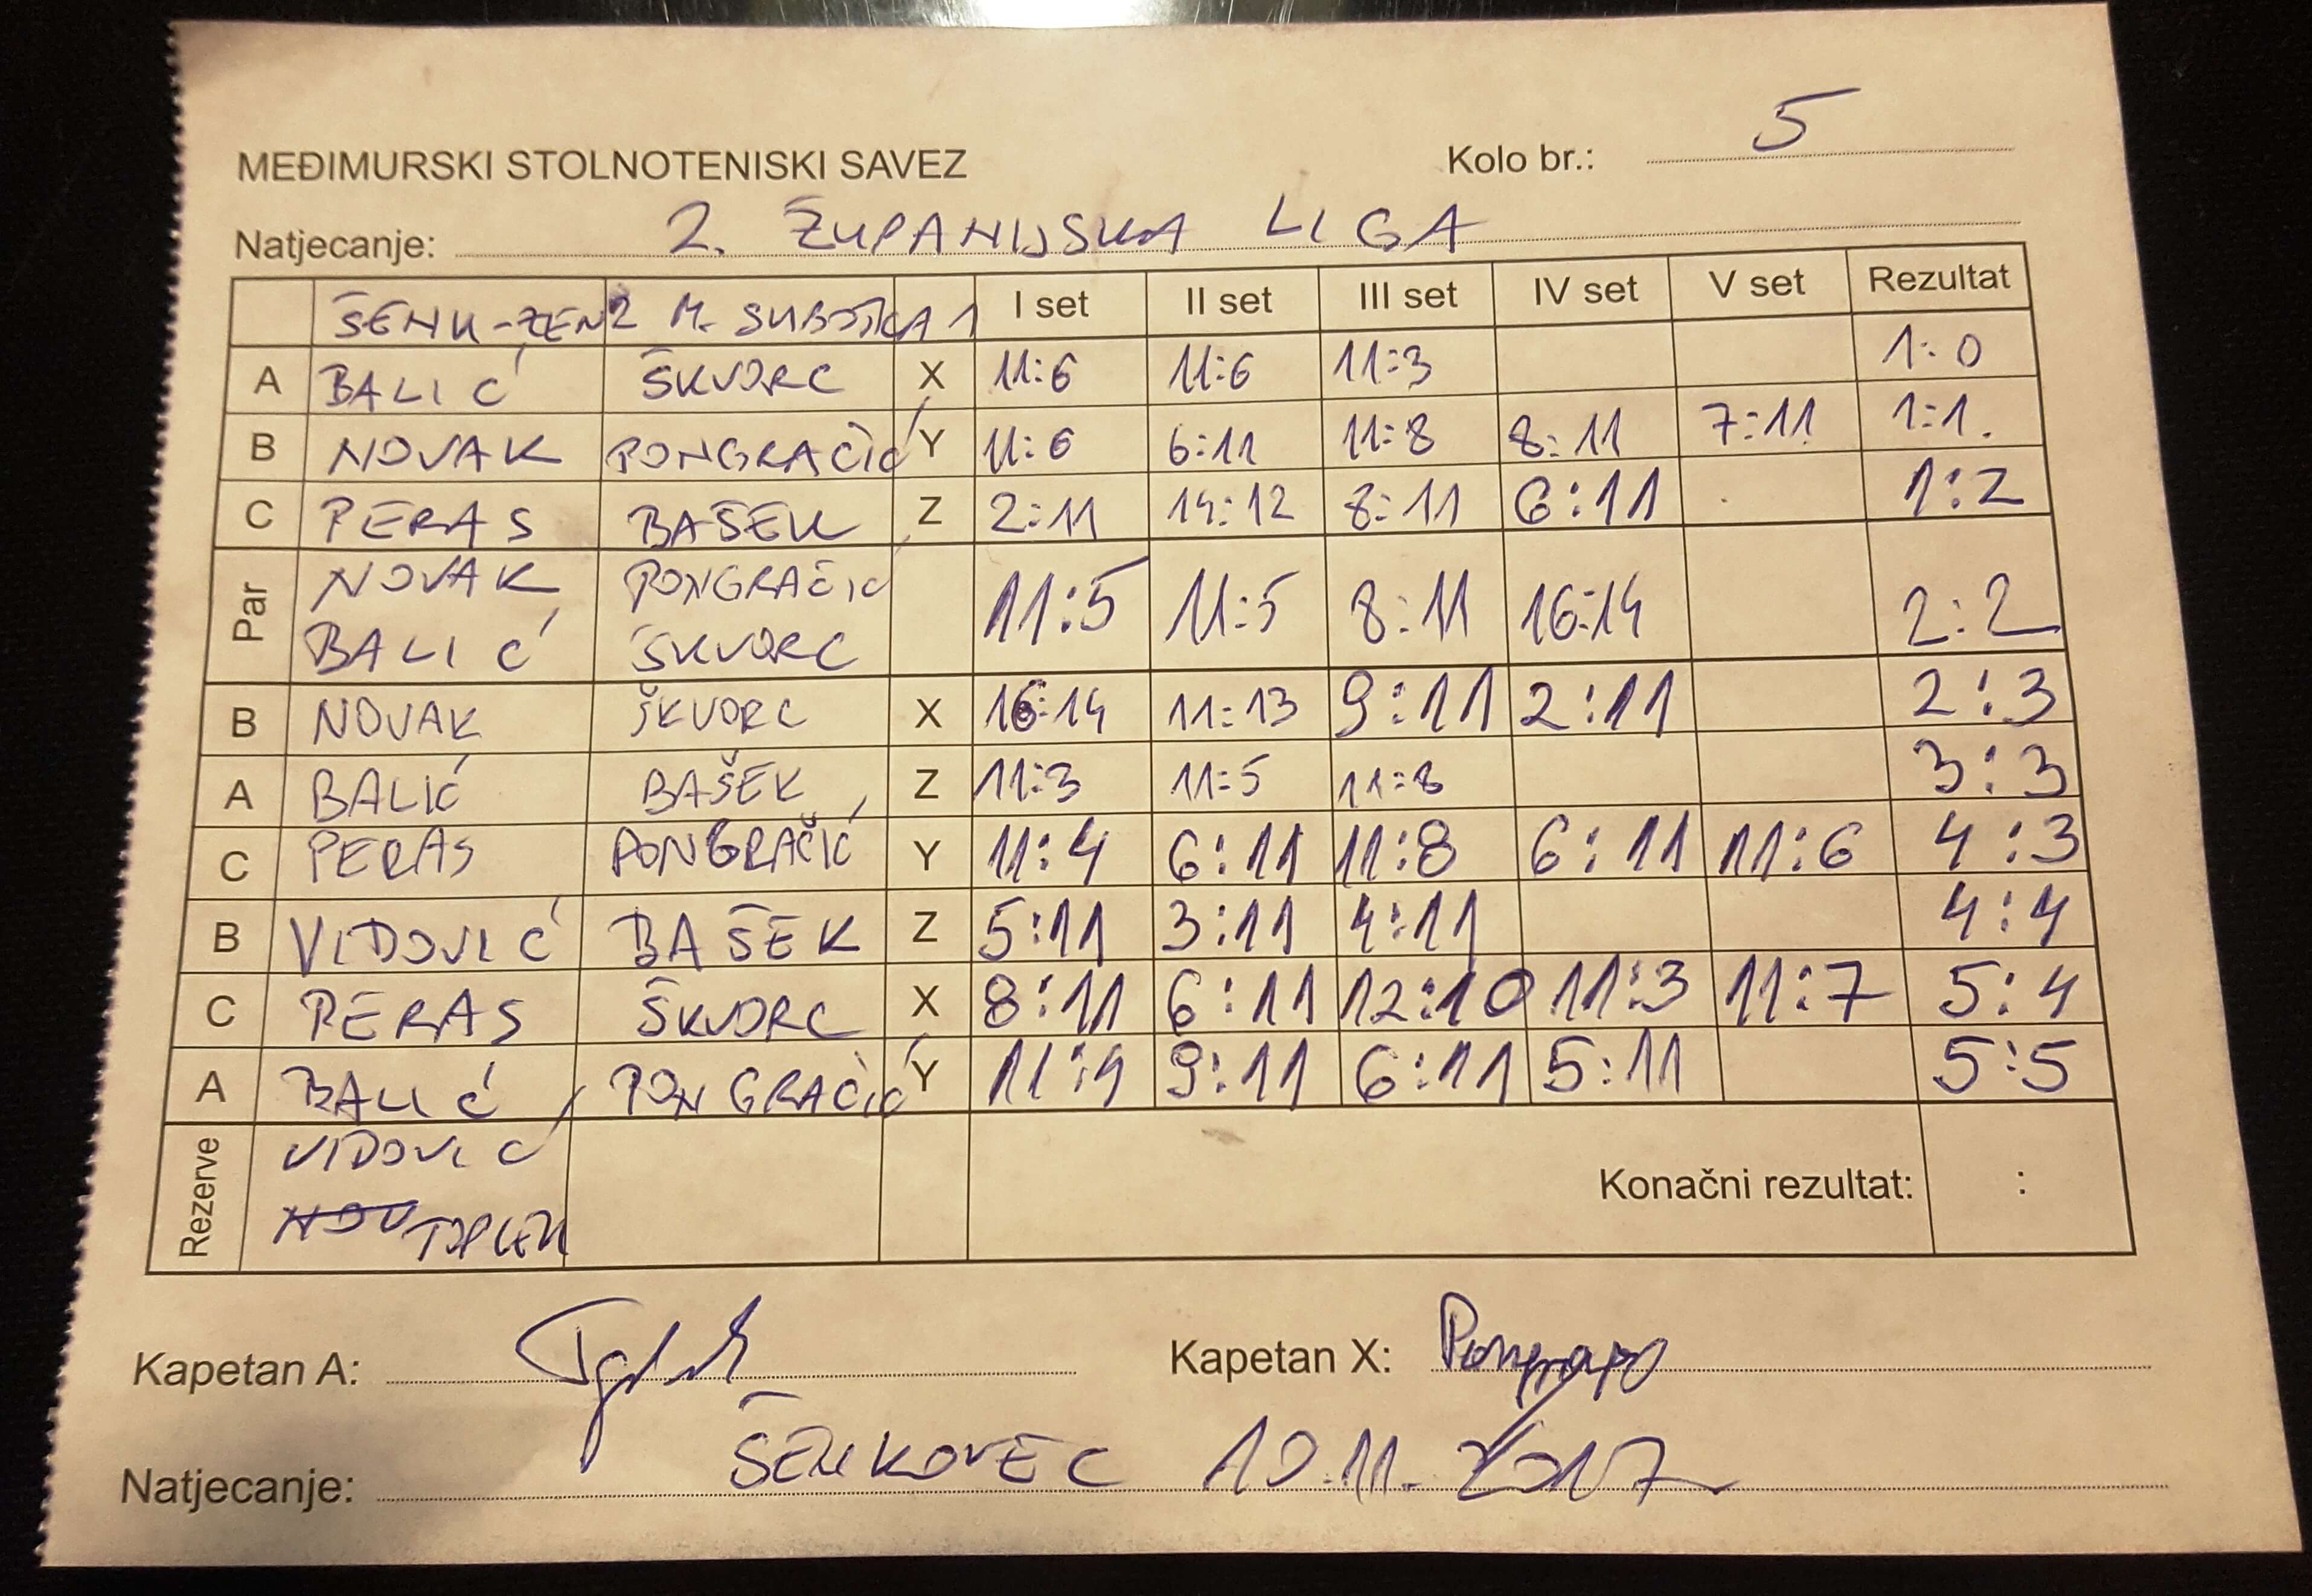 MEĐIMURSKI STOLNOTENISKI SAVEZ Kolo br.: 5
Natjecanje: 2. ŽUPANIJSKA LIGA
ŠENK-ZEN 2 M. SUBOTICA 1 I set II set III set IV set V set Rezultat
A BALIĆ ŠKVORC X 11:6 11:6 11:3 1:0
B NOVAK PONGRAČIĆ Y 11:6 6:11 11:8 8:11 7:11 1:1.
C PERAS BAŠEK Z 2:11 14:12 8:11 6:11 1:2
Par NOVAK PONGRAČIĆ 11:5 11:5 8:11 16:14 2:2
BALIĆ ŠKVORC
B NOVAK ŠKVORC X 16:14 11:13 9:11 2:11 2:3
A BALIĆ BAŠEK Z 11:3 11:5 11:8 3:3
C PERAS PONGRAČIĆ Y 11:4 6:11 11:8 6:11 11:6 4:3
B VIDOVIĆ BAŠEK Z 5:11 3:11 4:11 4:4
C PERAS ŠKVORC X 8:11 6:11 12:10 11:3 11:7 5:4
A BALIĆ PONGRAČIĆ Y 11:9 9:11 6:11 5:11 5:5
Rezerve VIDOVIĆ Konačni rezultat: :
NOV TOPLEK
Kapetan A: Kapetan X:
ŠENKOVEC 10.11.2017
Natjecanje: